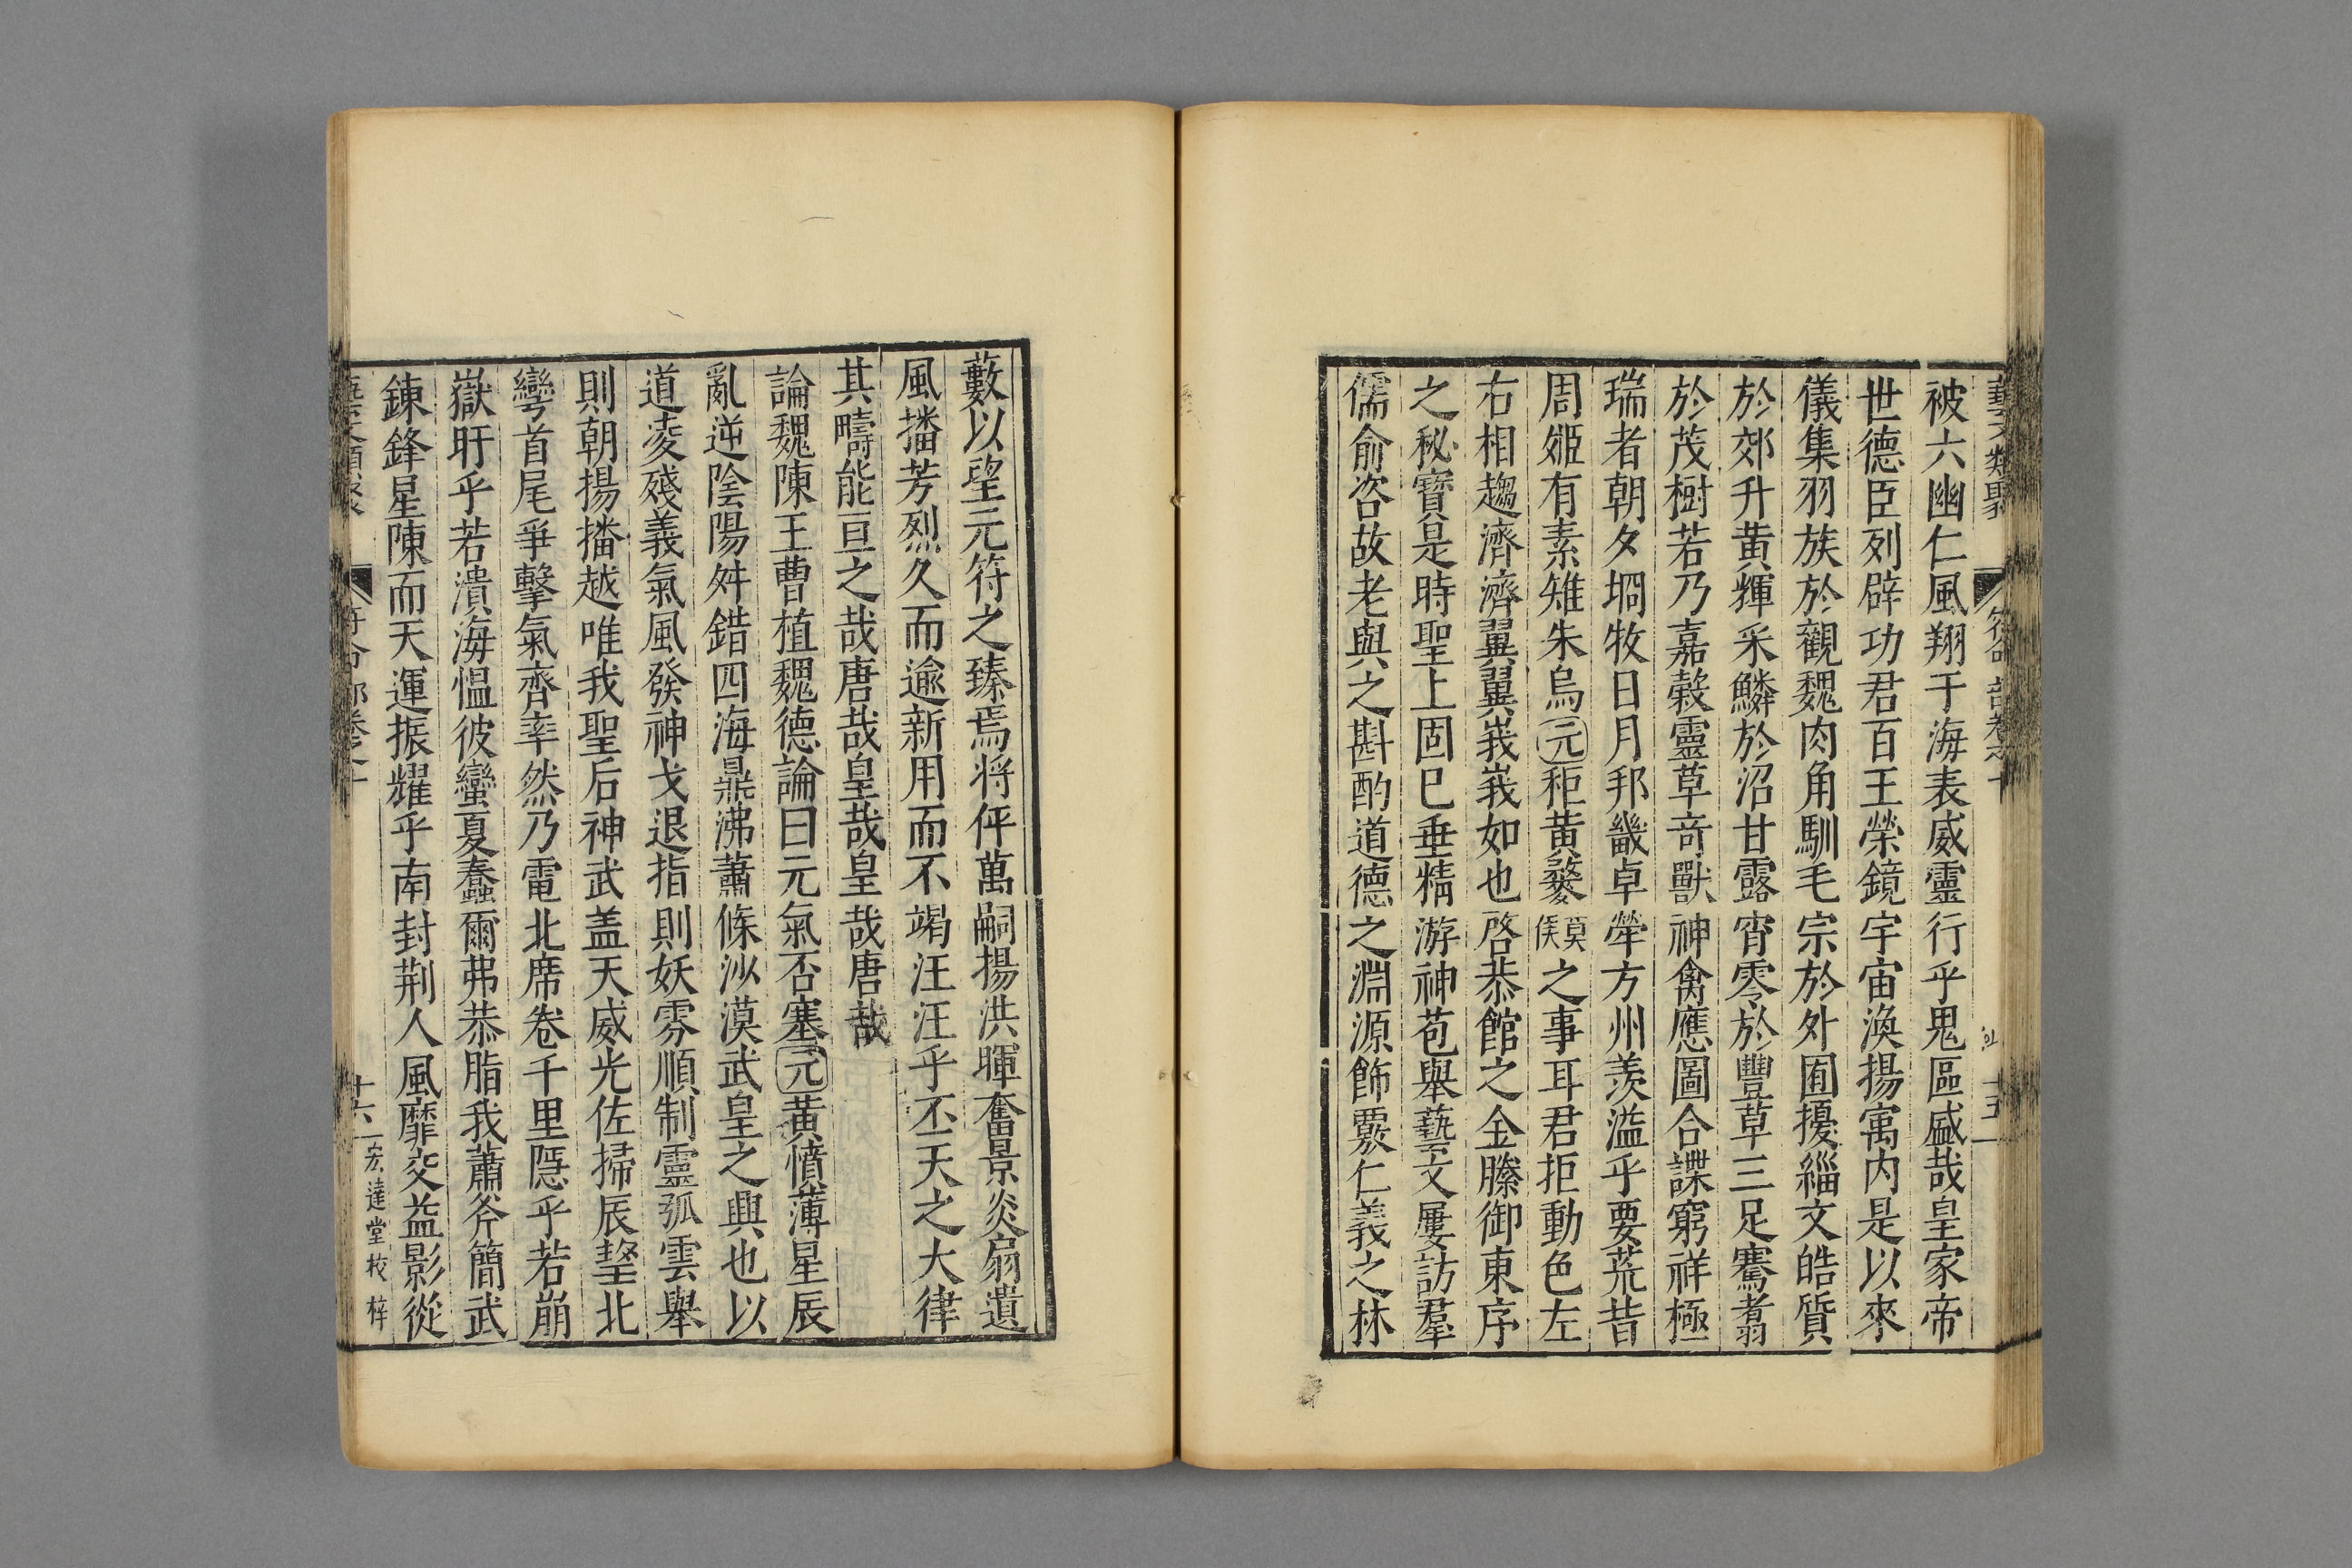 藝文類聚 符命部卷之十 十五
被六幽仁風翔于海表威靈行乎鬼區盛哉皇家帝
世德臣列辟功君百王榮鏡宇宙渙揚寓内是以來
儀集羽族於觀魏肉角馴毛宗於外囿擾緇文皓質
於郊升黄輝采鱗於沼甘露宵零於豐草三足鶱翥
於茂樹若乃嘉穀靈草竒獸神禽應圖合諜窮祥極
瑞者朝夕坰牧日月邦畿卓犖方州羨溢乎要荒昔
周姬有素雉朱烏元秬黄鍪莫侯之事耳君拒動色左
右相趨濟濟翼翼峩峩如也啓恭館之金縢御東序
之秘寶是時聖上固已垂精游神苞舉藝文屢訪羣
儒俞咨故老與之斟酌道德之淵源飾覈仁義之林
藪以望元符之臻焉将伻萬嗣揚洪暉奮景炎扇遺
風播芳烈久而逾新用而不竭汪汪乎丕天之大律
其疇能亘之哉唐哉皇哉皇哉唐哉
論魏陳王曹植魏德論曰元氣否塞元黄憤薄星辰
亂逆陰陽舛錯四海鼎沸蕭條沙漠武皇之興也以
道凌殘義氣風發神戈退指則妖雰順制靈弧雲舉
則朝揚播越唯我聖后神武盖天威光佐掃辰墊北
彎首尾爭擊氣齊率然乃電北席卷千里隱乎若崩
嶽旰乎若潰海愠彼蠻夏蠢爾弗恭脂我蕭斧簡武
錬鋒星陳而天運振耀乎南封荆人風靡交益影從
藝文類聚 符命部卷之十 十六 宏達堂校梓